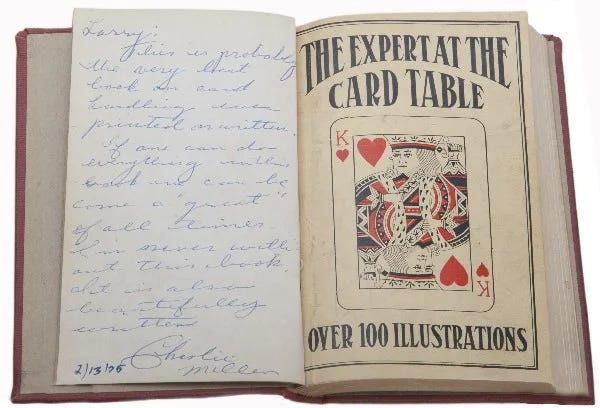 Larry:
This is probably
the very best
book on card
handling ever
printed or written.
If one can do
everything in this
book one can be
come a "great"
of all times.
I'm never with
out this book.
It is also
beautifully
written
Charlie
Miller
2/13/75
THE EXPERT AT THE
CARD TABLE
K
K
OVER 100 ILLUSTRATIONS